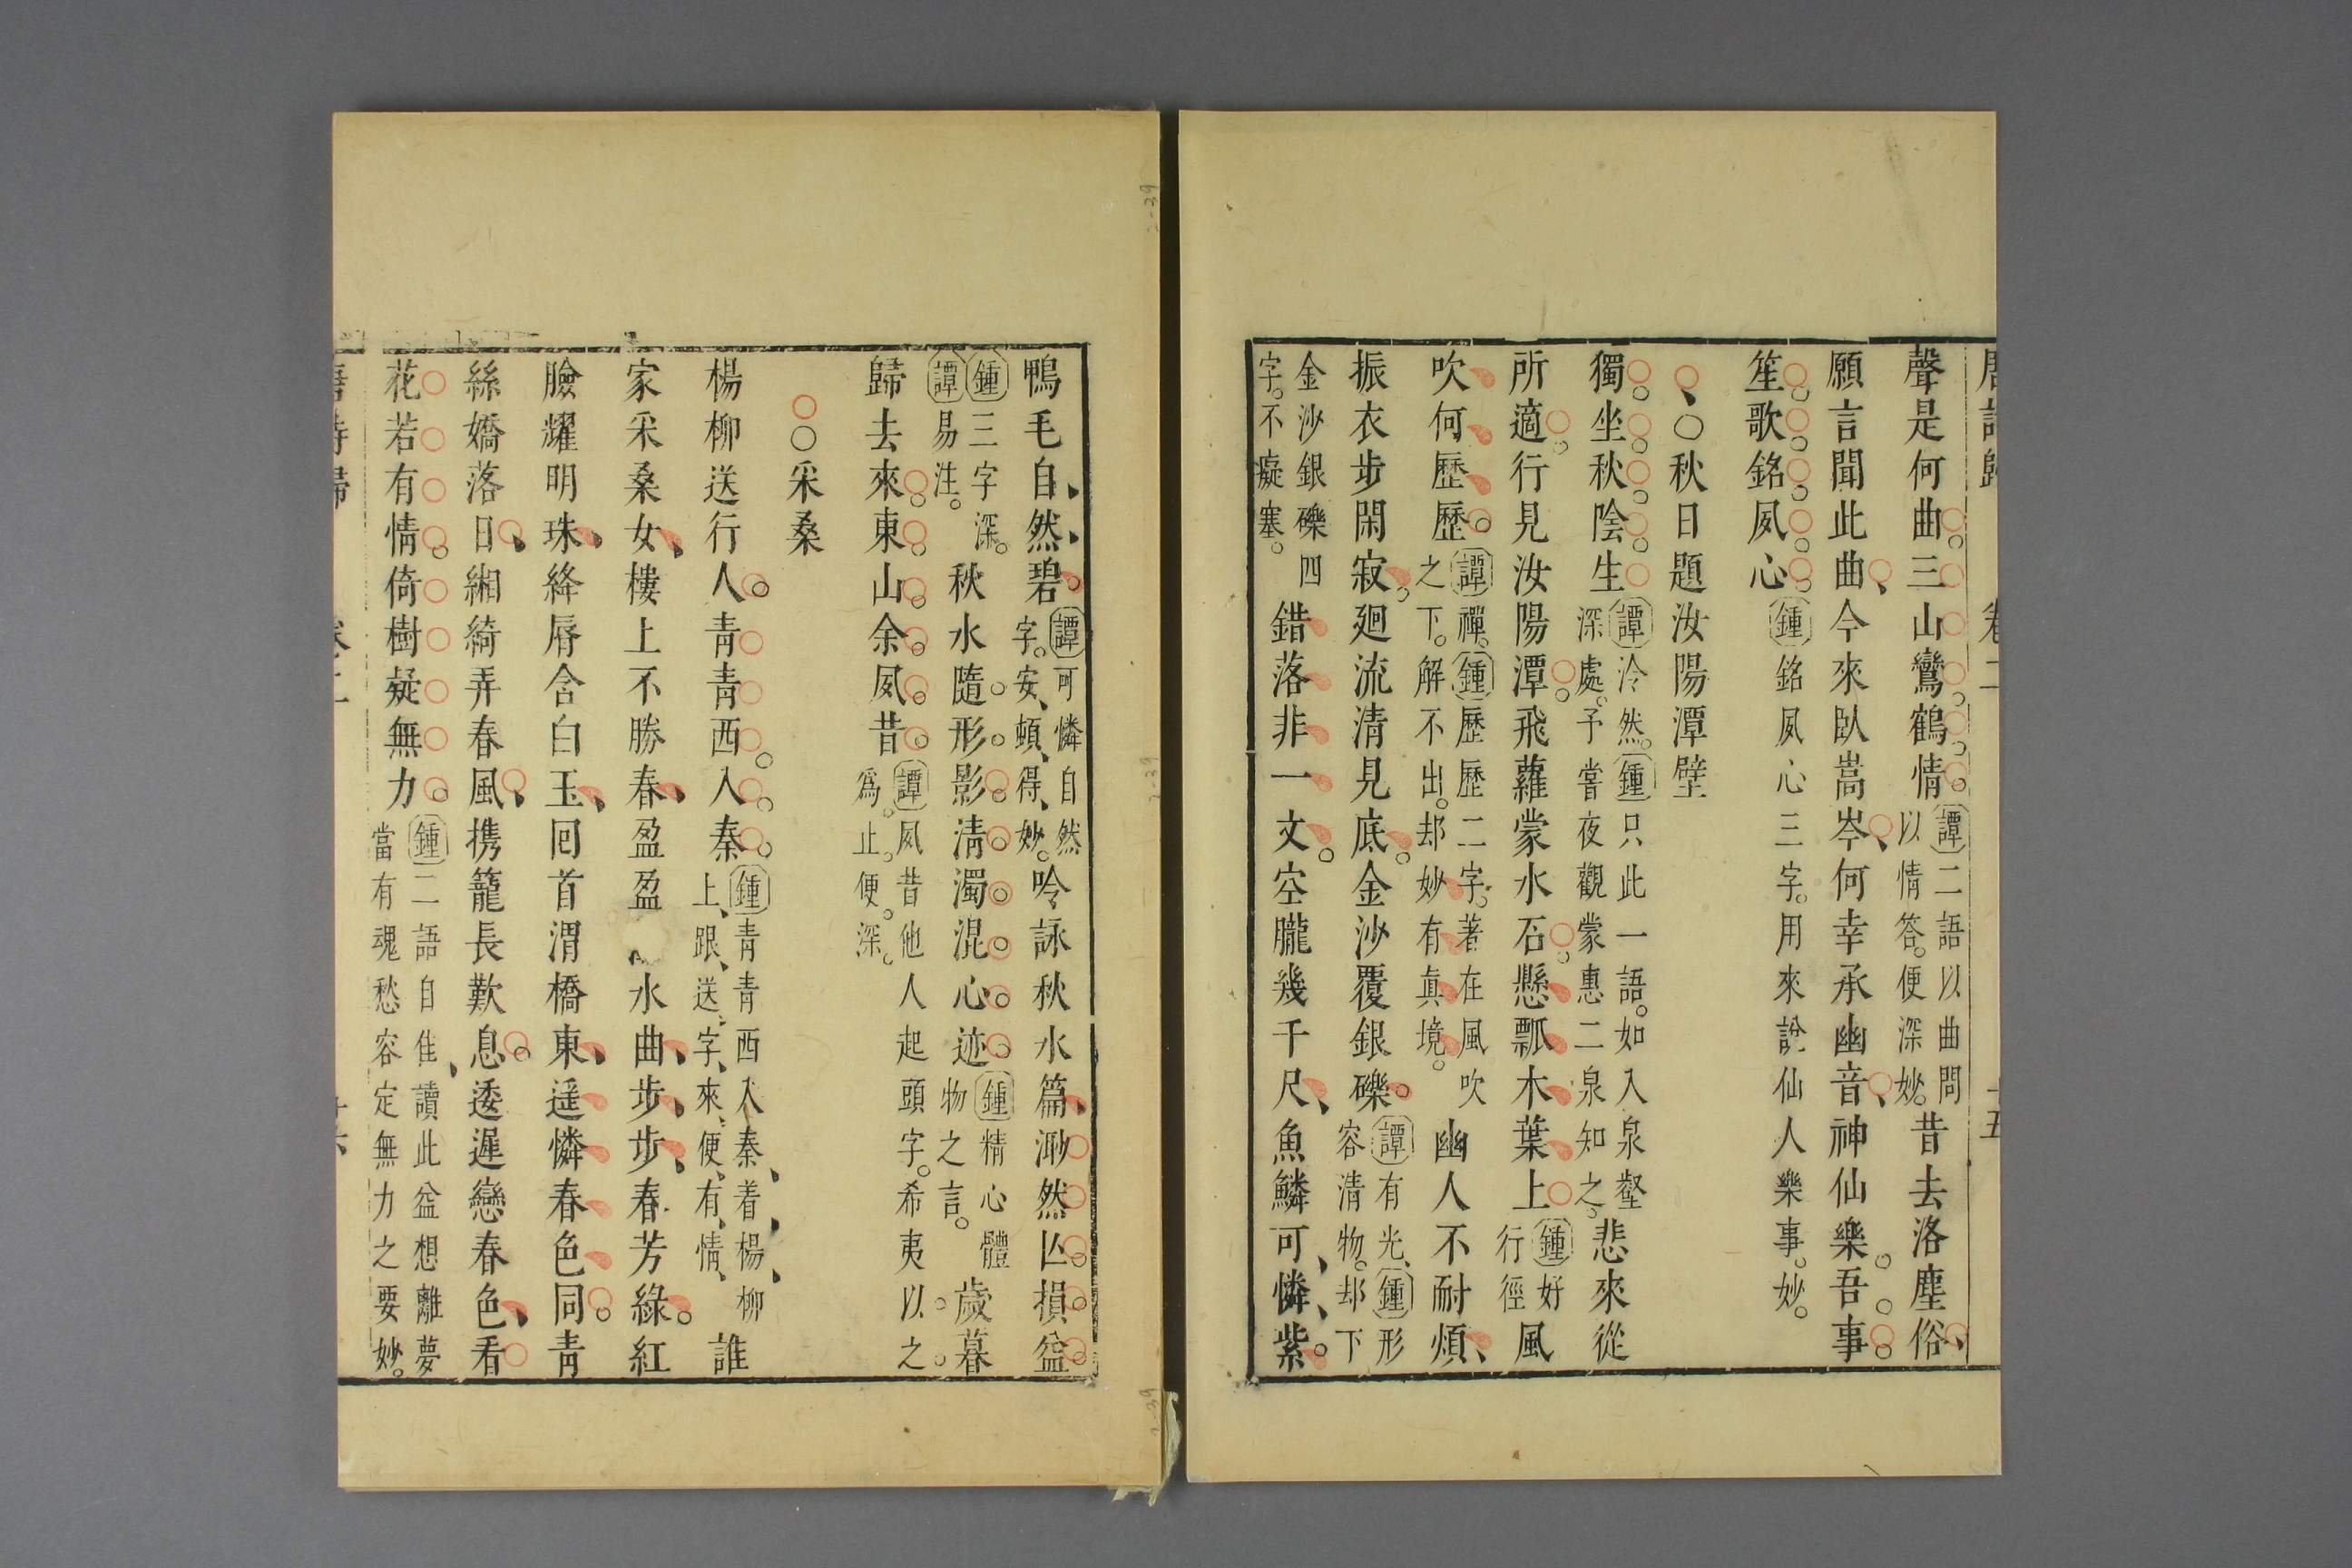 唐詩歸　卷二　十五
聲是何曲三山鸞鶴情譚二語以曲問以情答便深妙昔去洛塵俗
願言聞此曲今來臥嵩岑何幸承幽音神仙樂吾事
笙歌銘夙心鍾銘夙心三字用來說仙人樂事妙
○秋日題汝陽潭壁
獨坐秋陰生譚泠然鍾只此一語如入泉壑深處予嘗夜觀蒙惠二泉知之悲來從
所適行見汝陽潭飛蘿蒙水石懸瓢木葉上鍾好行徑風
吹何歷歷譚禪鍾歷歷二字著在風吹之下解不出却妙有真境幽人不耐煩
振衣步閑寂廻流清見底金沙覆銀礫譚有光鍾形容清物却下
金沙銀礫四字不癡塞錯落非一文空朧幾千尺魚鱗可憐紫
鴨毛自然碧譚可憐自然字安頓得妙吟詠秋水篇渺然亾損益
鍾三字深譚易注秋水隨形影淸濁混心迹鍾精心體物之言歲暮
歸去來東山余夙昔譚夙昔他人起頭字希夷以之爲止便深
○采桑
楊柳送行人青青西入秦鍾青青西入秦着楊柳上跟送字來便有情誰
家采桑女樓上不勝春盈盈水曲步步春芳綠紅
臉耀明珠絳脣含白玉囘首渭橋東遥憐春色同青
絲嬌落日緗綺弄春風携籠長歎息逶遲戀春色看
花若有情倚樹疑無力鍾二語自佳讀此益想離夢當有魂愁容定無力之要妙
唐詩歸　卷二　十六